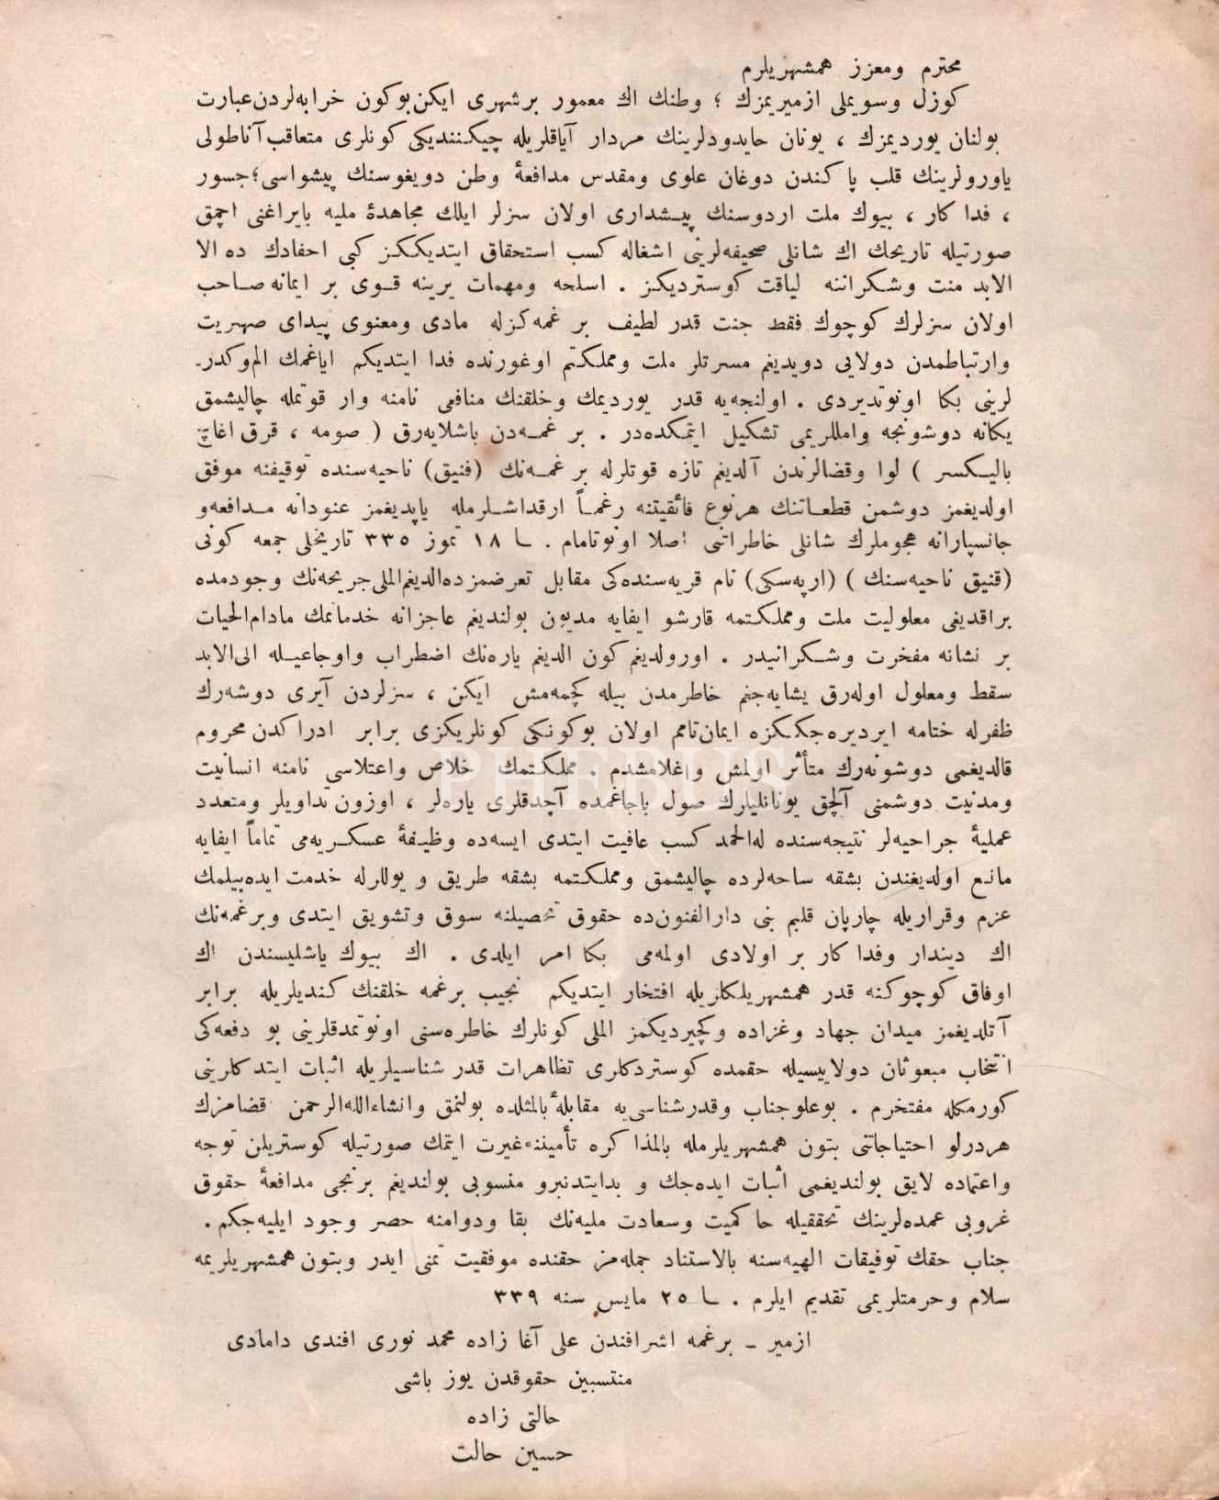 محترم ومعزز همشهریلرم
كوزل وسویملی ازمیریمزك ؛ وطنك اك معمور برشهری ایكن بوكون خرابه‌لردن عبارت
بولنان یوردیمزك ، یونان حایدودلرینك مردار آیاقلریله چیكنندیكی كونلری متعاقب آناطولی
یاورولرینك قلب پاكندن دوغان علوی ومقدس مدافعهٔ وطن دویغوسنك پیشواسی ؛ جسور
، فداكار ، بیوك ملت اردوسنك پیشداری اولان سزلر ایلك مجاهدهٔ ملیه بایراغنی احمق
صورتیله تاریحك اك شانلی صحیفه‌لرینی اشغاله كسب استحقاق ایتدیككز كبی احفادك ده الا
الابد منت وشكراننه لیاقت كوستردیكز . اسلحه ومهمات یرینه قوی بر ایمانه صاحب
اولان سزلرك كوچوك فقط جنت قدر لطیف برغمه‌كزله مادی ومعنوی پیدای صهریت
وارتباطمدن دولایی دویدیغم مسرتلر ملت ومملكتم اوغورنده فدا ایتدیكم ایاغمك الم‌وكدر-
لرینی بكا اونوتدیردی . اولنجه‌یه قدر یوردیمك وخلقنك منافعی نامنه وار قوتمله چالیشمق
یكانه دوشونجه وامللریمی تشكیل ایتمكده‌در . برغمه‌دن باشلایه‌رق ( صومه ، قرق اغاچ
بالیكسر ) لوا وقضالرندن آلدیغم تازه قوتلرله برغمه‌نك (فنیق) ناحیه‌سنده توقیفنه موفق
اولدیغمز دوشمن قطعاتنك هرنوع فائقیتنه رغماً ارقداشلرمله یاپدیغمز عنودانه مدافعه‌و
جانسپارانه هجوملرك شانلی خاطراتنی اصلا اونوتامام . ـا ١٨ تموز ٣٣٥ تاریخلی جمعه كونی
(قنیق ناحیه‌سنك ) (ارپه‌سكی) نام قریه‌سنده‌كی مقابل تعرضمزده‌الدیغم‌المی‌جریحه‌نك وجودمده
براقدیغی معلولیت ملت ومملكتمه قارشو ایفایه مدیون بولندیغم عاجزانه خدماتمك مادام‌الحیات
بر نشانه مفخرت وشكرانیدر . اورولدیغم كون الدیغم یاره‌نك اضطراب واوجاعیله الی‌الابد
سقط ومعلول اوله‌رق یشایه‌جغم خاطرمدن بیله كچمه‌مش ایكن ، سزلردن آیری دوشه‌رك
ظفرله ختامه ایردیره‌جككزه ایمان‌تامم اولان بوكونكی كونلریكزی برابر ادراكدن محروم
قالدیغمی دوشونه‌رك متأثر اولمش واغلامشدم . مملكتمك خلاص واعتلاسی نامنه انسانیت
ومدنیت دوشمنی آلچق یونانلیلرك صول باجاغمده آچدقلری یاره‌لر ، اوزون تداویلر ومتعدد
عملیهٔ جراحیه‌لر نتیجه‌سنده له‌الحمد كسب عافیت ایتدی ایسه‌ده وظیفهٔ عسكریه‌می تماماً ایفایه
مانع اولدیغندن بشقه ساحه‌لرده چالیشمق ومملكتمه بشقه طریق و یوللرله خدمت ایده‌بیلمك
عزم وقراریله چارپان قلبم بنی دارالفنون‌ده حقوق تحصیلنه سوق وتشویق ایتدی وبرغمه‌نك
اك دیندار وفداكار بر اولادی اولمه‌می بكا امر ایلدی . اك بیوك یاشلیسندن اك
اوفاق كوچوكنه قدر همشهریلكلریله افتخار ایتدیكم نجیب برغمه خلقنك كندیلریله برابر
آتلدیغمز میدان جهاد وغزاده وكچیردیكمز المی كونلرك خاطره‌سنی اونوتمدقلرینی بو دفعه‌كی
انتخاب مبعوثان دولاییسیله حقمده كوستردكلری تظاهرات قدر شناسیلریله اثبات ایتدكلرینی
كورمكله مفتخرم . بوعلوجناب وقدرشناسی‌یه مقابلهٔ بالمثلده بولنمق وانشاءالله‌الرحمن قضامزك
هردرلو احتیاجاتنی بتون همشهریلرمله بالمذاكره تأمیننه غیرت ایتمك صورتیله كوستریلن توجه
واعتماده لایق بولندیغمی اثبات ایده‌جك و بدایتدنبرو منسوبی بولندیغم برنجی مدافعهٔ حقوق
غروپی عمده‌لرینك تحققیله حاكمیت وسعادت ملیه‌نك بقا ودوامنه حصر وجود ایلیه‌جكم .
جناب حقك توفیقات الهیه‌سنه بالاستناد جمله‌مز حقنده موفقیت تمنی ایدر وبتون همشهریلریمه
سلام وحرمتلریمی تقدیم ایلرم . ـا ٢٥ مایس سنه ٣٣٩
ازمیر ـ برغمه اشرافندن علی آغا زاده محمد نوری افندی دامادی
منتسبین حقوقدن یوز باشی
حالتی زاده
حسین حالت
PHEBUS